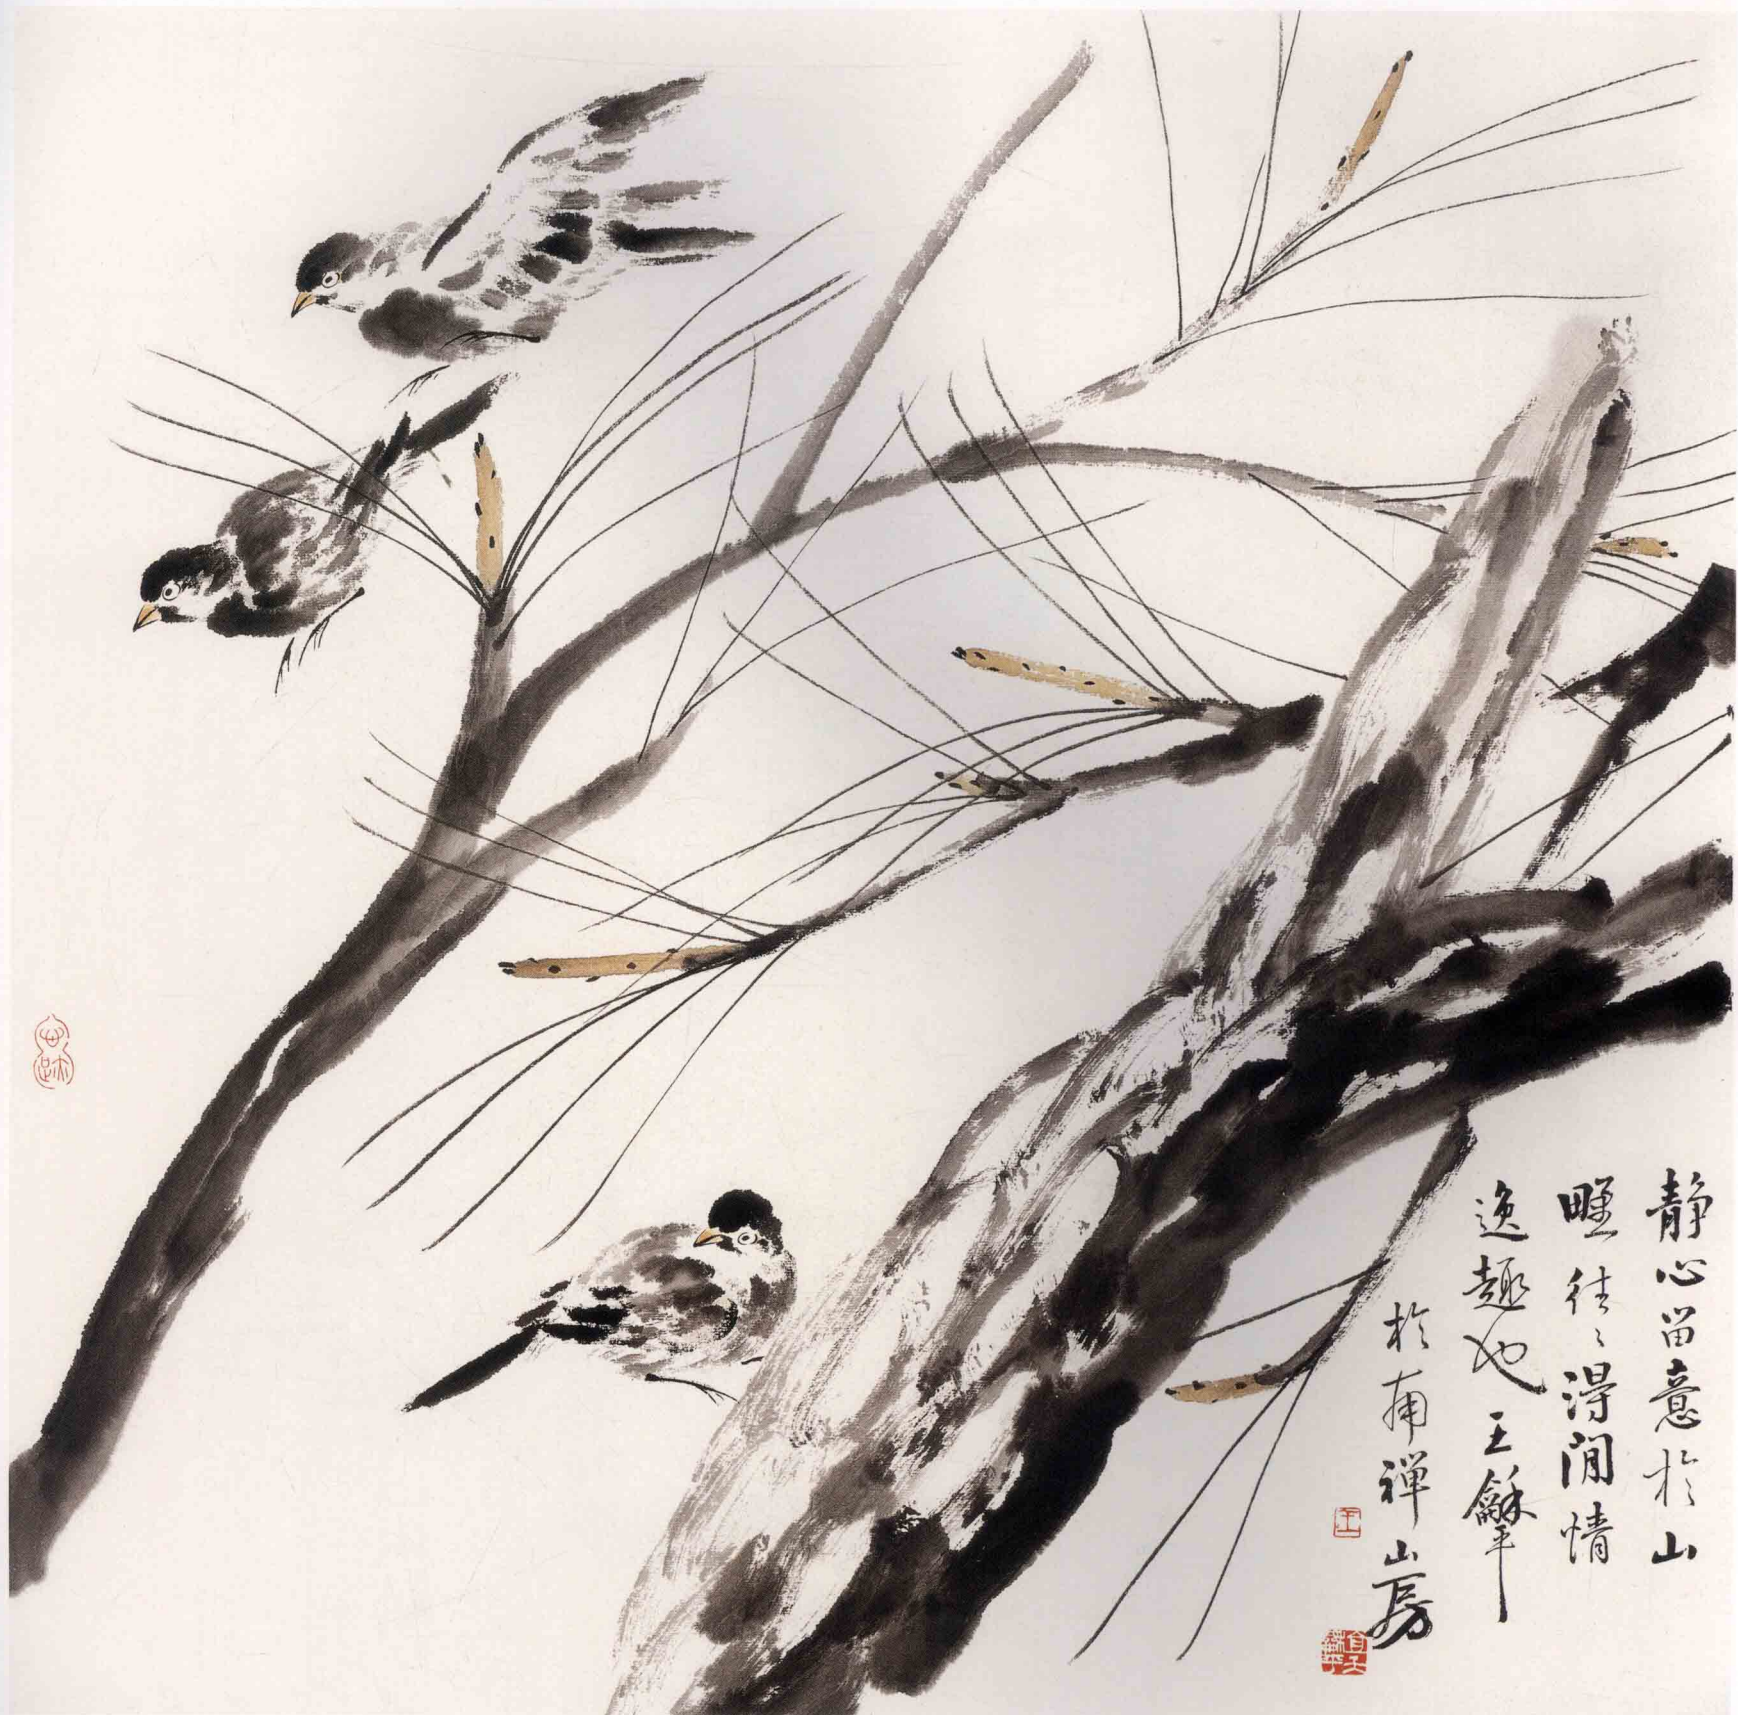 静心留意於山
野往々得閒情
逸趣也 王龢平
於南禅山房
王